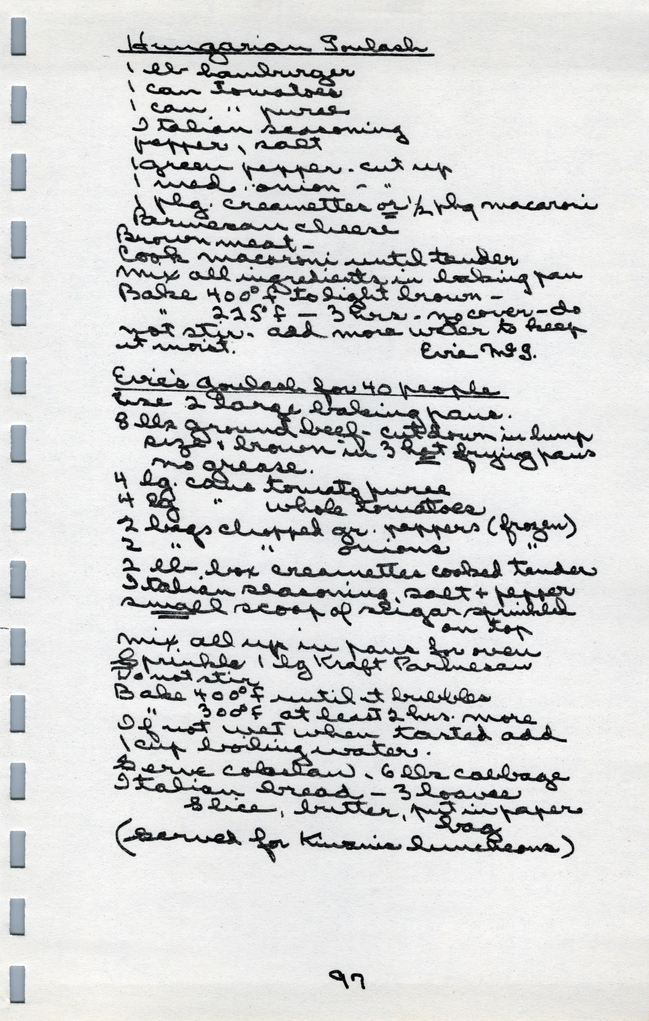 Hungarian Goulash
1 lb hamburger
1 can tomatoes
1 can " puree
Italian seasoning
pepper, salt
1 green pepper - cut up
1 med. onion - "
1 pkg. creamettes or 1/2 pkg macaroni
Parmesan cheese
Brown meat -
Cook macaroni until tender
Mix all ingredients in baking pan
Bake 400° F to light brown -
" 225° F - 3 hrs. - no cover - do
not stir - add more water to keep
it moist. Evie McG.
Evie's Goulash for 40 people
Use 2 large baking pans.
8 lbs ground beef - cut down in lump
size & brown in 3 hot frying pans
no grease.
4 lg. cans tomato puree
4 lg " whole tomatoes
2 bags chopped gr. peppers (frozen)
2 " " onions "
2 lb. box creamettes cooked tender
Italian seasoning, salt + pepper
small scoop of sugar sprinkled
on top
Mix all up in pans for oven
Sprinkle 1 lg Kraft Parmesan
Do not stir
Bake 400° F until it bubbles
" 300° F at least 2 hrs. more
If not wet when tasted add
1 cup boiling water.
Serve coleslaw - 6 lbs cabbage
Italian bread - 3 loaves
Slice, butter, put in paper
bag
(Served for Kiwanis luncheons)
97